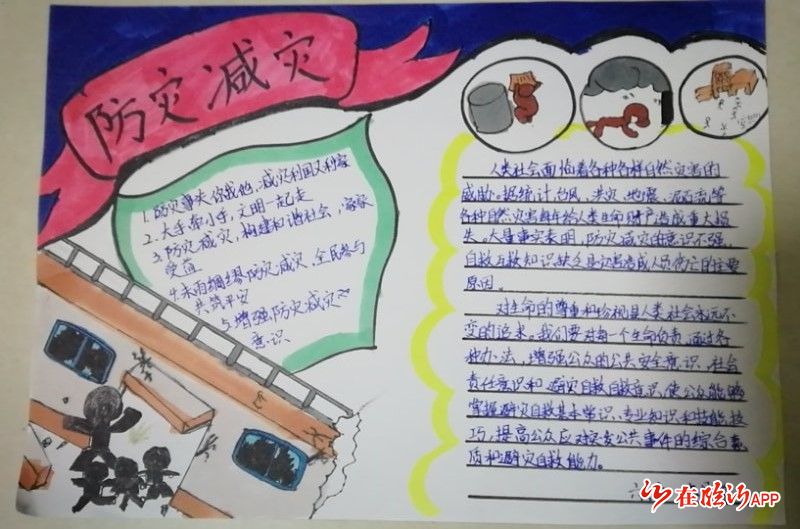 防灾减灾
1.防灾事关你我他,减灾利国又利家
2.大手牵小手,文明一起走
3.防灾减灾,构建和谐社会,家家
受益
4.未雨绸缪防灾减灾,全民参与
共筑平安
5.增强防灾减灾
意识
人类社会面临着各种各样自然灾害的
威胁。据统计,台风、洪灾、地震、泥石流等
各种自然灾害每年给人类生命财产造成重大损
失。大量事实表明,防灾减灾的意识不强,
自救互救知识缺乏是灾害造成人员伤亡的主要
原因。
对生命的尊重和珍视是人类社会永远不
变的追求。我们要对每一个生命负责,通过各
种办法,增强公众的公共安全意识、社会
责任意识和避灾自救自救意识,使公众能够
掌握避灾自救基本学识、专业知识和技能技
巧,提高公众应对突发公共事件的综合素
质和避灾自救能力。
六
在临沂APP